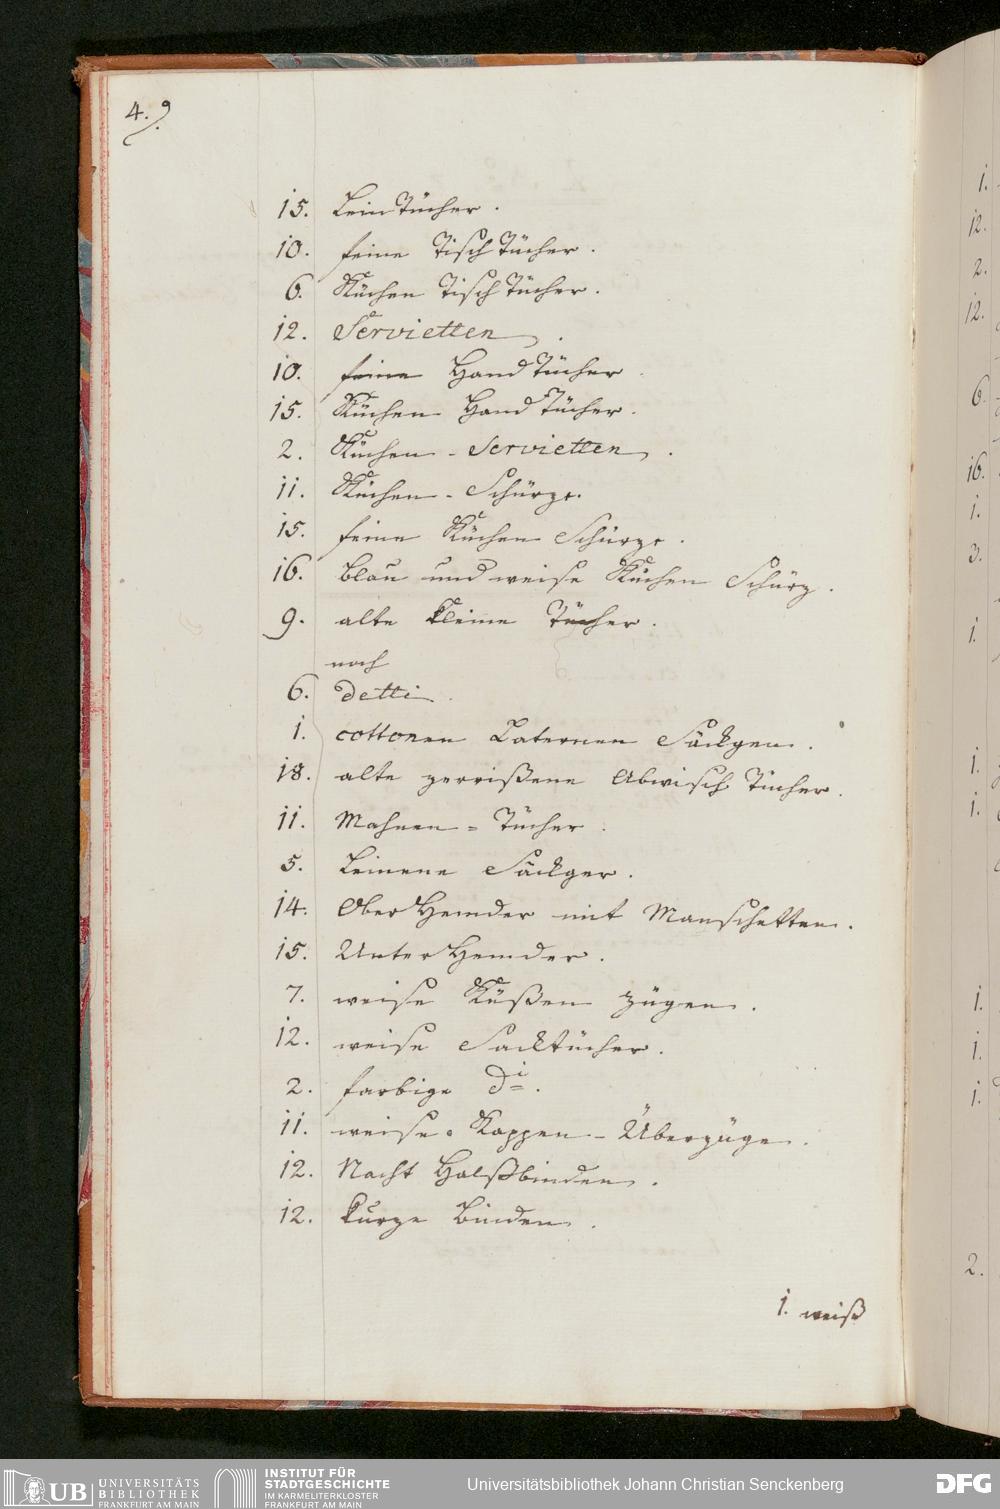 4.
15. Lein Tücher.
10. feine Tisch Tücher.
6. Küchen Tisch Tücher.
12. Servietten.
10. feine Hand Tücher.
15. Küchen Hand Tücher.
2. Küchen-Servietten.
11. Küchen-Schürze.
15. feine Küchen Schürze.
16. blau und weise Küchen Schürz.
9. alte kleine Tücher.
noch
6. detti.
1. cottonen Laternen Säckgen.
18. alte zerrißene Abwisch Tücher.
11. Mahnen-Tücher.
5. Leinene Säckger.
14. Ober Hemder mit Manschetten.
15. Unter Hemder.
7. weise Küßen Zügen.
12. weise Sacktücher.
2. farbige di.
11. weise Kappen-Überzüge.
12. Nacht Halßbinden.
12. kurze Binden.
1. weiß
1.
12.
2.
12.
6.
16.
1.
3.
1.
1.
1.
1.
1.
1.
2.
UB UNIVERSITÄTS BIBLIOTHEK FRANKFURT AM MAIN
INSTITUT FÜR STADTGESCHICHTE IM KARMELITERKLOSTER FRANKFURT AM MAIN
Universitätsbibliothek Johann Christian Senckenberg
DFG